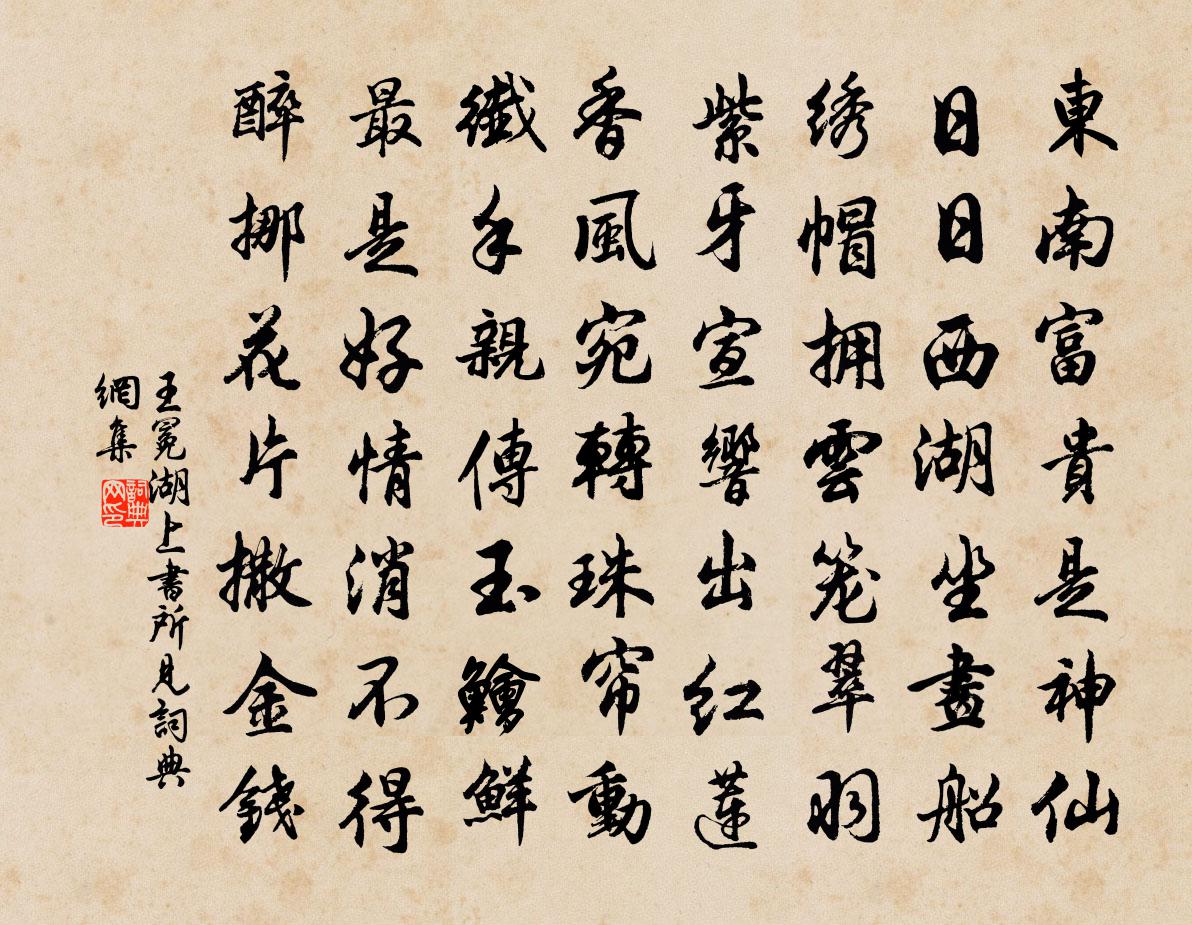 東南富貴是神仙
日日西湖坐畫船
绣帽拥雲笼翠羽
紫牙宣響出红蓮
香風宛轉珠帘動
纖手親傳玉鱠鮮
最是好情消不得
醉挪花片撒金錢
王冕湖上書所見詞典
網集
詞典
网印